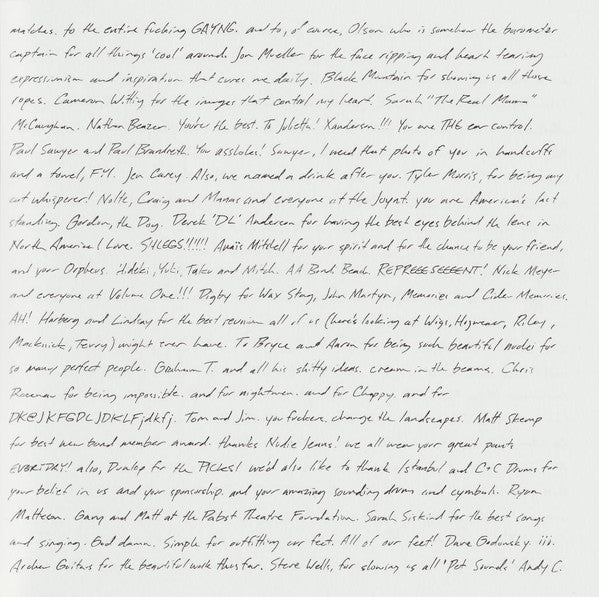 matches. to the entire fucking GAYNG. and to, of course, Olson who is somehow the barometer
captain for all things 'cool' around. Jon Mueller for the face ripping and heart tearing
expressionism and inspiration that cures me daily. Black Mountain for showing us all those
ropes. Cameron Wittig for the images that control my heart. Sarah "The Real Mama"
McCaughan. Nathan Beazer. You're the best. To Julietta! Xanderson!!! You are THE ear control.
Paul Sawyer and Paul Brandreth. You assholes! Sawyer, I need that photo of you in handcuffs
and a towel, FYI. Jen Carey. Also, we named a drink after you. Tyler Morris, for being my
cat whisperer! Nolte, Craig and Manas and everyone at the Joynt. you are American's last
standing. Gordon, the Dog. Derek 'DL' Anderson for having the best eyes behind the lens in
North America I Love. S4LEGS!!!!!! Anaïs Mitchell for your spirit and for the chance to be your friend,
and your Orpheus. Hideki, Yuki, Taku and Mitch. AA Bondi Beach. REPREEESEEEENT! Nick Meyer
and everyone at Volume One!!! Digby for Wax Stag, John Martyn, Memories and Cider Memories.
AH! Harberg and Lindsay for the best reunion all of us (here's looking at Wigs, Hogwear, Riley,
Mackissick, Terry) might ever have. To Bryce and Aaron for being such beautiful nudes for
so many perfect people. Graham T. and all his shitty ideas. cream in the beama. Chris
Rosenau for being impossible. and for nightmen. and for Chappy. and for
DK@JKFGDLJDKLFjdkfj. Tom and Jim. you fuckers. change the landscapes. Matt Skemp
for best new band member award. thanks Nudie Jeans! we all wear your great pants
EVERIDAY! also, Dunlop for the PICKES! we'd also like to thank Istanbul and C+C Drums for
your belief in us and your sponsorship. and your amazing sounding drums and cymbals. Ryan
Matteson. Gary and Matt at the Pabst Theatre Foundation. Sarah Siskind for the best songs
and singing. God damn. Simple for outfitting our feet. All of our feet! Dave Godowsky. iii.
Archer Guitars for the beautiful work thus far. Steve Wells, for showing us all 'Pet Sounds' Andy C.